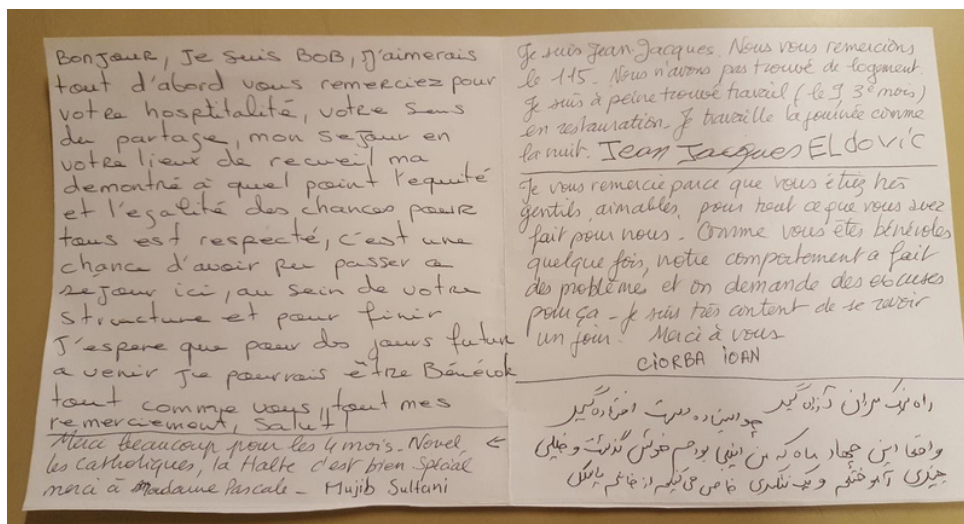 Bonjour, Je suis BOB, J'aimerais
tout d'abord vous remerciez pour
votre hospitalité, votre sens
du partage, mon sejour en
votre lieux de recueil ma
demontré à quel point l'equité
et l'egalité des chances pour
tous est respecté, c'est une
chance d'avoir pu passer ce
sejour ici, au sein de votre
structure et pour finir
J'espere que pour des jours futur
a venir je pourrais être Bénévok
tout comme vous, tout mes
remerciement, salut!
Merci beaucoup pour les 4 mois. Novel ←
les catholiques, la Halte c'est bien Spécial
merci à Madame Pascale - Mujib Sultani
Je suis Jean-Jacques. Nous vous remercions
le 115. Nous n'avons pas trouvé de logement.
Je suis à peine trouvé travail (le 9 3e mois)
en restauration. Je travaille la journée comme
la nuit. Jean Jacques ELdovic
Je vous remercie parce que vous étiez très
gentils, aimables, pour tout ce que vous avez
fait pour nous. Comme vous êtes bénévoles
quelque fois, notre comportement a fait
des problèmes et on demande des excuses
pour ça - Je suis très content de se revoir
un jour. Merci à vous
CIORBA IOAN
راه نیک مردان آزاده گیر
چو ایستاده دست افتاده گیر
واقعا این چهار ماه که من اینجا بودم خوش گذشت و خیلی
چیزی آموختم و یک تشکری خاص می کنم از خانم پاسکل